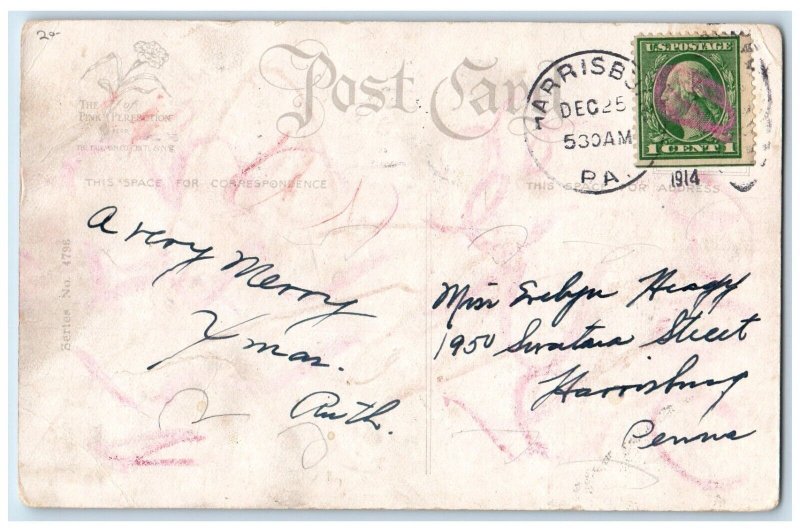 20-
Post Card
THE
Pink of Perfection
THIS SPACE FOR CORRESPONDENCE
THIS SPACE FOR ADDRESS
Series No. 4796
U.S. POSTAGE
1 CENT 1
HARRISBU
DEC 25
530AM
1914
PA.
A Very Merry
Xmas.
Ruth.
Miss Evelyn Heagy
1950 Swatara Street
Harrisburg
Penna